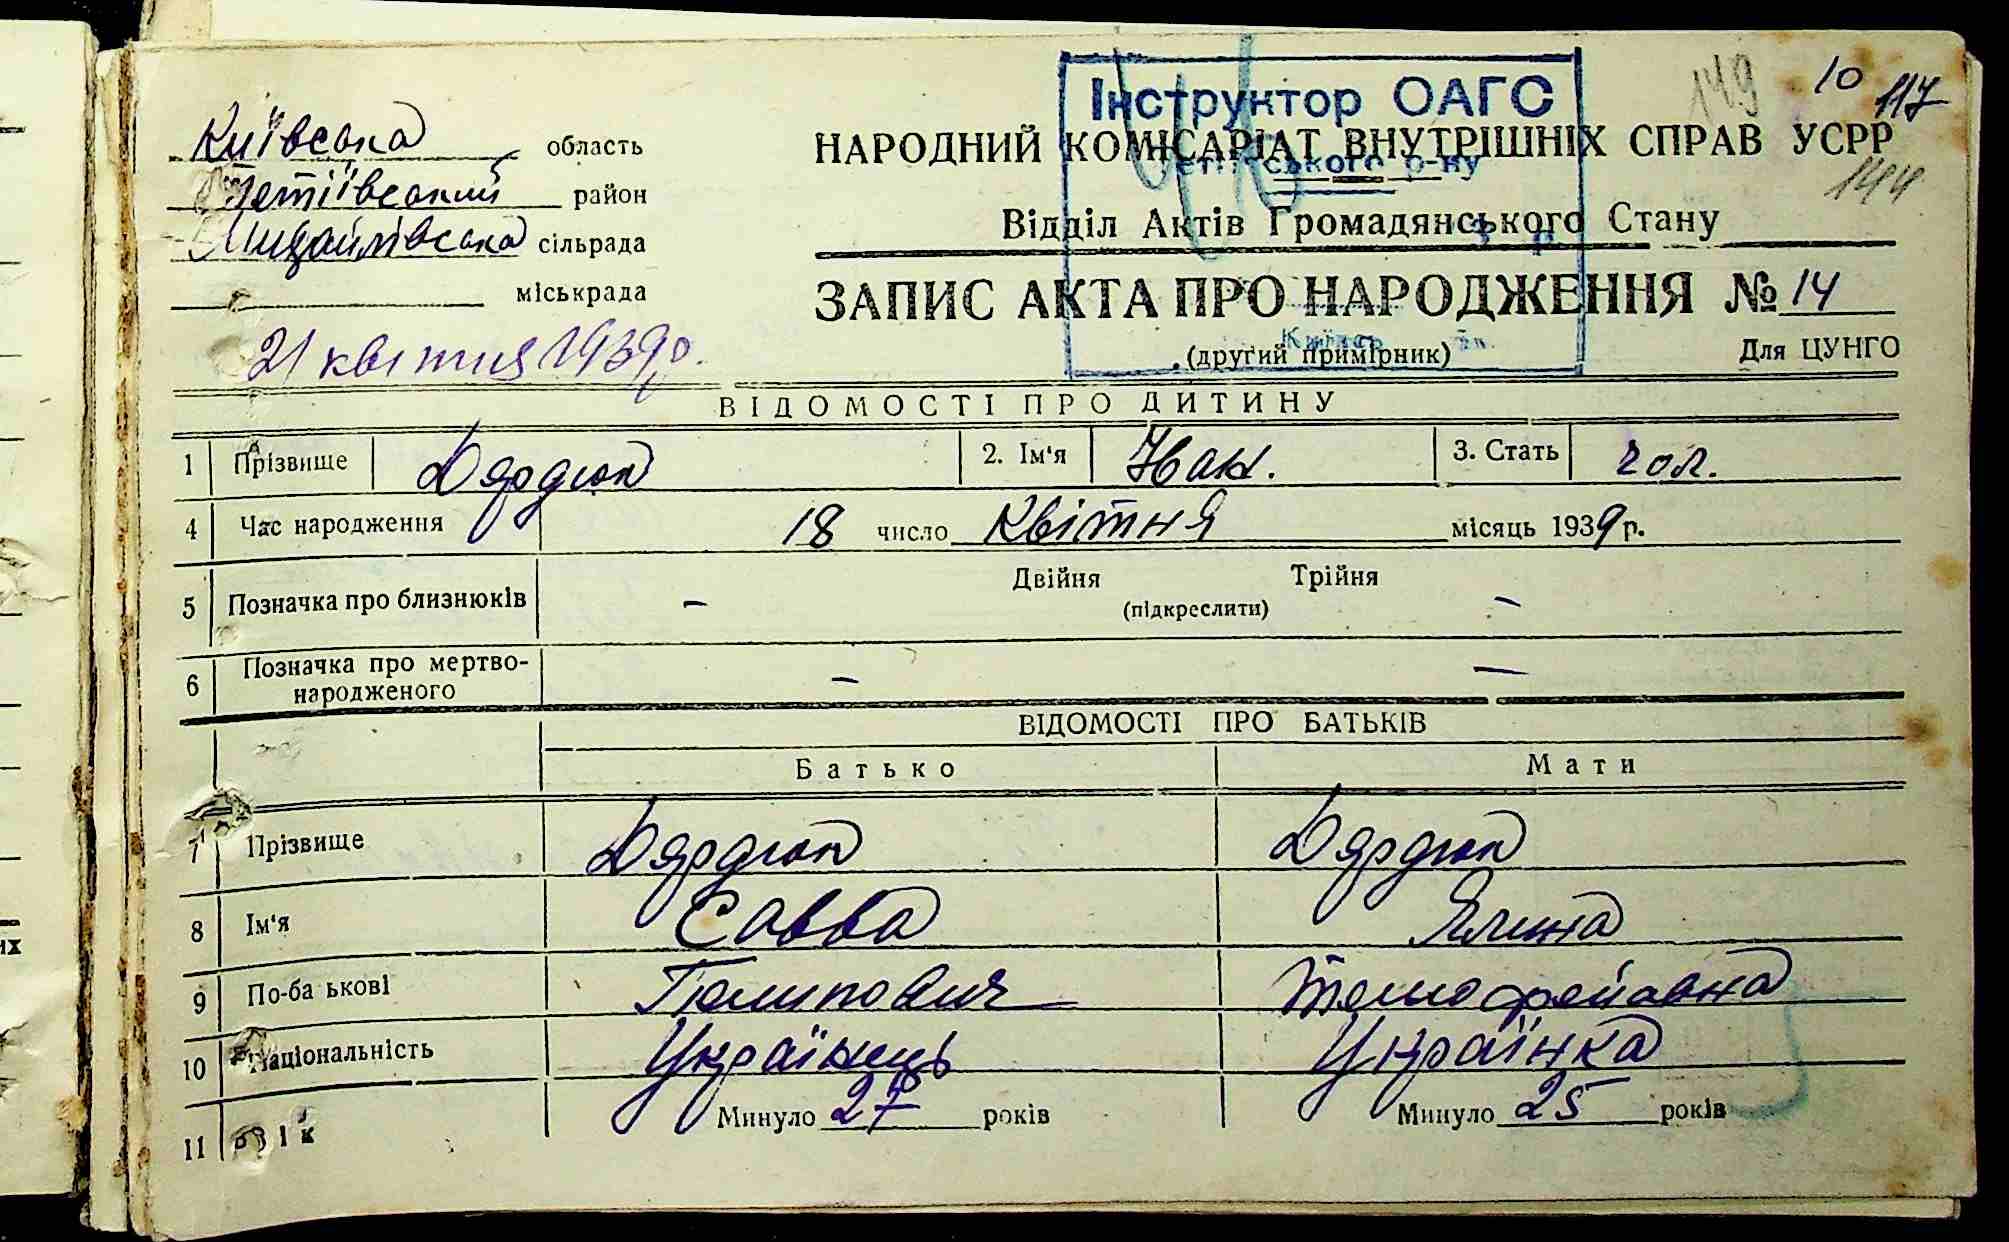 149 10 117
Інструктор ОАГС
Київська область
НАРОДНИЙ КОМІСАРІАТ ВНУТРІШНІХ СПРАВ УСРР
ського р-ну
144
Тетіївський район
Михайлівська сільрада
Відділ Актів Громадянського Стану
міськрада
ЗАПИС АКТА ПРО НАРОДЖЕННЯ № 14
21 квітня 1939 р.
(другий примірник)
Для ЦУНГО
ВІДОМОСТІ ПРО ДИТИНУ
1 Прізвище Дярдюк 2. Ім'я Іван. 3. Стать чол.
4 Час народження 18 число Квітня місяць 1939 р.
5 Позначка про близнюків – Двійня Трійня –
(підкреслити)
6 Позначка про мертво-
народженого – –
ВІДОМОСТІ ПРО БАТЬКІВ
Батько Мати
7 Прізвище Дярдюк Дярдюк
8 Ім'я Савва Ялина
9 По-ба ькові Пилипович Тимофеївна
10 Національність Українець Українка
11 Вік Минуло 27 років Минуло 25 років
их